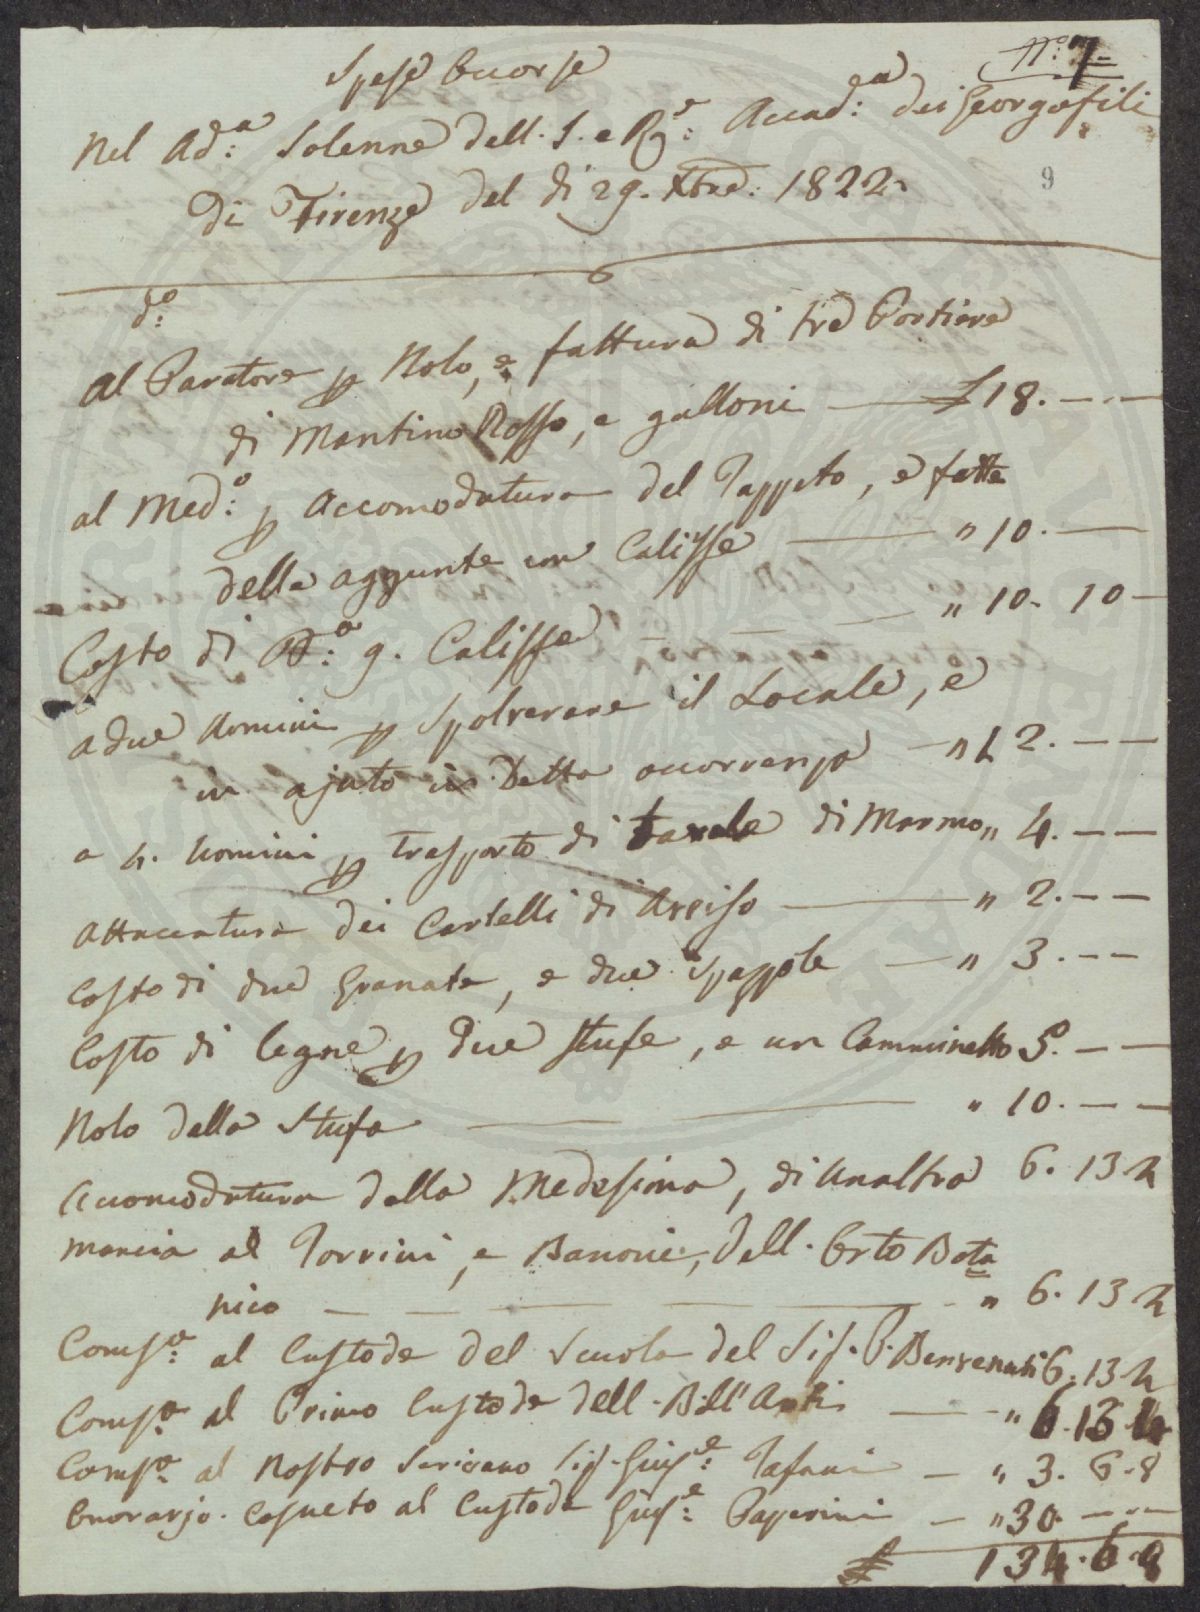 N.° 7
Spese Occorse
Nel Ad.a Solenne dell. I. e R.e Accad.a dei Georgofili
9
Di Firenze del di 29. Xbre: 1822
d.o
Al Paratore p Nolo, e fattura di tre Portiere
di Mantino Rosso, e galloni — £ 18. — —
al Med.o p Accomodatura del Tappeto, e fatte
delle aggunte con Calisse — " 10. —
Costo di B.a 9. Calisse — " 10. 10 —
a due Uomini p Spolverare il Locale, e
in ajuto in Detta occorrenza — " 12. — —
a 4. Uomini p trasporto di tavole di Marmo " 4. — —
Attaccatura dei Cartelli di Avviso — " 2. — —
Costo di due Granate, e due Spazzole — " 3. — —
Costo di legne p due stufe, e un Camminetto 5. — —
Nolo della Stufa — " 10. — —
Accomodatura della Medesima, di Unaltra 6. 13 4
mancia al Torrini, e Banoni, dell. Orto Bota
nico — " 6. 13 4
Comp.a al Custode del Scuola del Sig. P. Benvenuti 6. 13 4
Comp.a al Primo Custode dell. Bell' Arti — " 6. 13 4
Comp.a al Nostro Scrivano Sig. Gius.e Tafani — " 3. 6. 8
Onorario. Consueto al Custode Gius.e Paperini — " 30. — —
£ 134. 6. 8